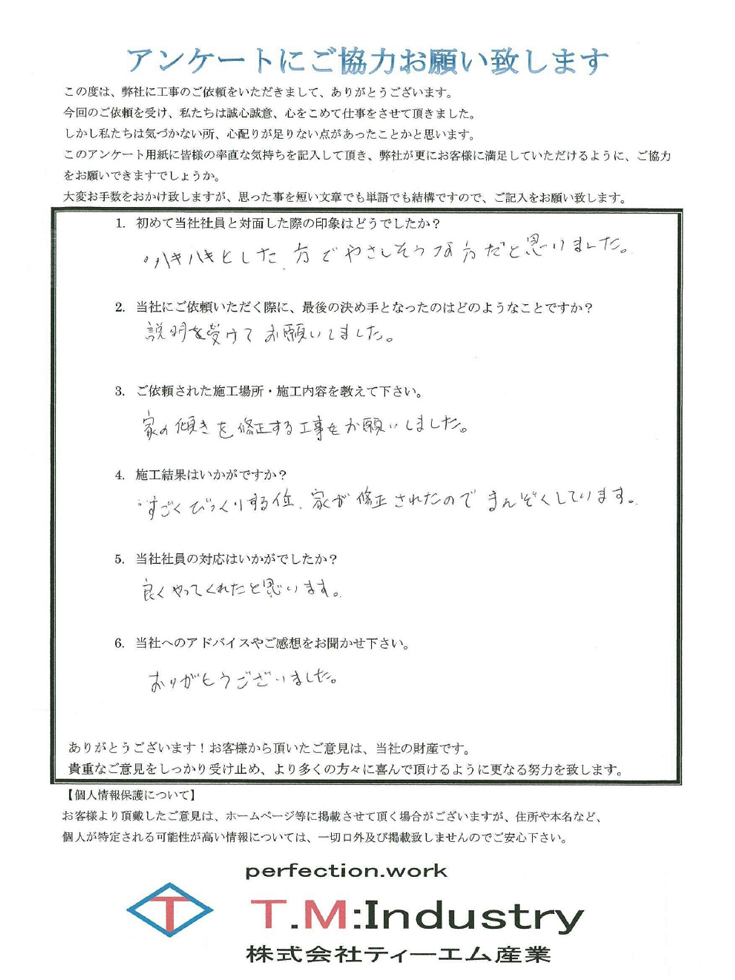 アンケートにご協力お願い致します
この度は、弊社に工事のご依頼をいただきまして、ありがとうございます。
今回のご依頼を受け、私たちは誠心誠意、心をこめて仕事をさせて頂きました。
しかし私たちは気づかない所、心配りが足りない点があったことかと思います。
このアンケート用紙に皆様の率直な気持ちを記入して頂き、弊社が更にお客様に満足していただけるように、ご協力
をお願いできますでしょうか。
大変お手数をおかけ致しますが、思った事を短い文章でも単語でも結構ですので、ご記入をお願い致します。
1. 初めて当社社員と対面した際の印象はどうでしたか？
ハキハキとした、方でやさしそうな方だと思いました。
2. 当社にご依頼いただく際に、最後の決め手となったのはどのようなことですか？
説明を受けてお願いしました。
3. ご依頼された施工場所・施工内容を教えて下さい。
家の傾きを修正する工事をお願いしました。
4. 施工結果はいかがですか？
すごくびっくりする位、家が修正されたのでまんぞくしています。
5. 当社社員の対応はいかがでしたか？
良くやってくれたと思います。
6. 当社へのアドバイスやご感想をお聞かせ下さい。
ありがとうございました。
ありがとうございます！お客様から頂いたご意見は、当社の財産です。
貴重なご意見をしっかり受け止め、より多くの方々に喜んで頂けるように更なる努力を致します。
【個人情報保護について】
お客様より頂戴したご意見は、ホームページ等に掲載させて頂く場合がございますが、住所や本名など、
個人が特定される可能性が高い情報については、一切口外及び掲載致しませんのでご安心下さい。
perfection.work
T
T.M:Industry
株式会社ティーエム産業